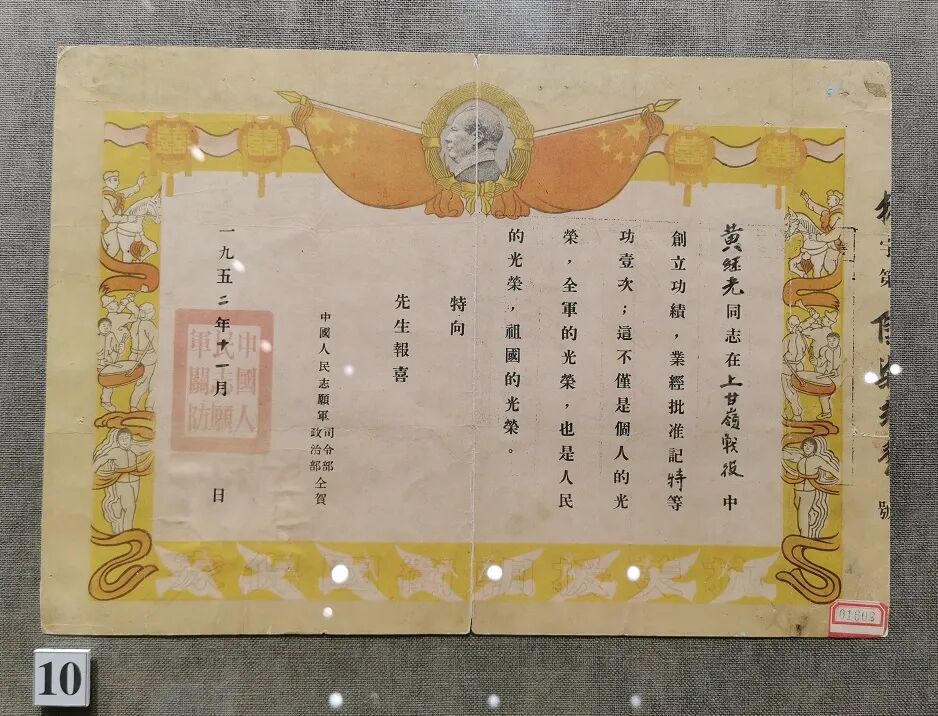 黃経光同志在上甘嶺戰役中
創立功績，業經批准記特等
功壹次；這不僅是個人的光
榮，全軍的光榮，也是人民
的光榮，祖國的光榮。
特向
先生報喜
中國人民志願軍司令部
政治部仝賀
一九五二年十一月 日
中國人
民志願
軍關防
抗美援朝 保家衛國
01603
10